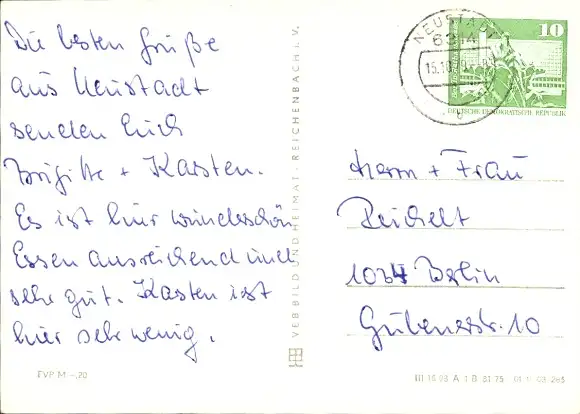 Die besten Grüße
aus Neustadt
senden Euch
Brigitte + Karsten.
Es ist hier wunderschön
Essen ausreichend und
sehr gut. Karsten ist
hier sehr wenig.
EVP M -,20
VEB BILD UND HEIMAT, REICHENBACH i. V.
NEUSTADT
6314
15.10.
10
DEUTSCHE DEMOKRATISCHE REPUBLIK
Herrn + Frau
Reichelt
1034 Berlin
Gubenerstr. 10
III 18 98 A 1 B 81 75